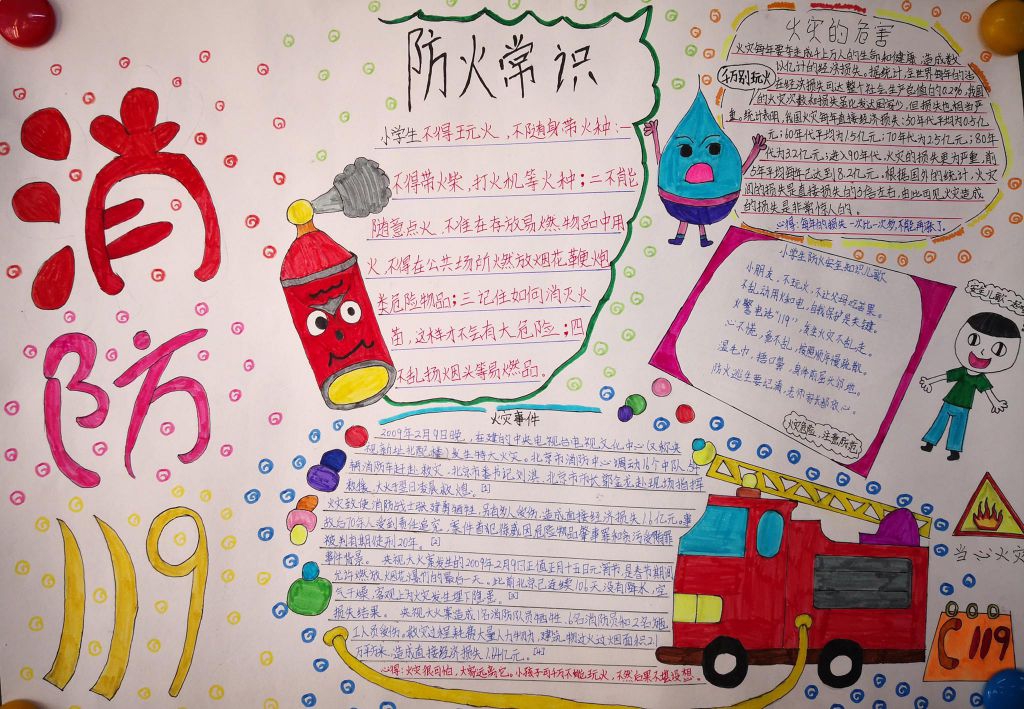 消
防
119
防火常识
小学生不得玩火，不随身带火种：一
不得带火柴，打火机等火种；二不能
随意点火，不准在存放易燃物品中用
火，不得在公共场所燃放烟花鞭炮
类危险物品；三记住如何消灭火
苗，这样才不会有大危险；四
不乱扔烟头等易燃品。
火灾的危害
火灾每年要夺走成千上万人的生命和健康，造成数
以亿计的经济损失。据统计，全世界每年的火
灾经济损失可达整个社会生产总值的0.2%，我国
的火灾次数和损失虽比发达国家少，但损失也相当严
重。统计表明，我国火灾每年直接经济损失：50年代平均为0.5亿
元；60年代平均为1.5亿元；70年代为2.5亿元；80年
代为3.2亿元；进入90年代，火灾的损失更为严重，前
5年平均每年已达到8.2亿元。根据国外的统计，火灾
间的损失是直接损失的5倍左右，由此可见火灾造成
的损失是非常惊人的。
心得：每年的损失一次比一次多，不能再涨了。
千万别玩火
小学生防火安全知识儿歌
小朋友，不玩火，不让父母吃苦果。
不乱动用煤和电，自我保护是关键。
火警电话"119"，发生火灾不乱走。
心不慌，意不乱，按照顺序慢疏散。
湿毛巾，捂口鼻，身体前屈
防火逃生要记清，老师家长都放心。
火灾危险，注意防范
火灾事件
2009年2月9日晚，在建的中央电视台电视文化中心（又称央
视新址北配楼）发生特大火灾。北京市消防中心调动16个中队，54
辆消防车赶赴救灾，北京市委书记刘淇、北京市市长郭金龙赴现场指挥
救援，大火于翌日凌晨救熄。[1]
火灾致使消防战士张建勇牺牲，另有8人受伤，造成直接经济损失1.6亿元。事
故后70年人受到责任追究，案件首犯徐威因危险物品肇事罪和贪污受贿罪
被判有期徒刑20年。[2]
事件背景。 央视大火案发生的2009年2月9日正值正月十五日元宵节，是春节期间
允许燃放烟花爆竹的最后一天。此前北京已连续106天没有降水，空
气干燥，客观上为火灾发生埋下隐患。[3]
损失结果。 央视大火案造成1名消防队员牺牲，6名消防员和2名施
工人员受伤。救灾过程耗费大量人力物力，建筑物过火过烟面积2.1
万平方米，造成直接经济损失1.64亿元。[4]
心得：火灾很可怕，大家远离它。小孩子千万不能玩火，不然后果不堪设想。
当心火灾
119